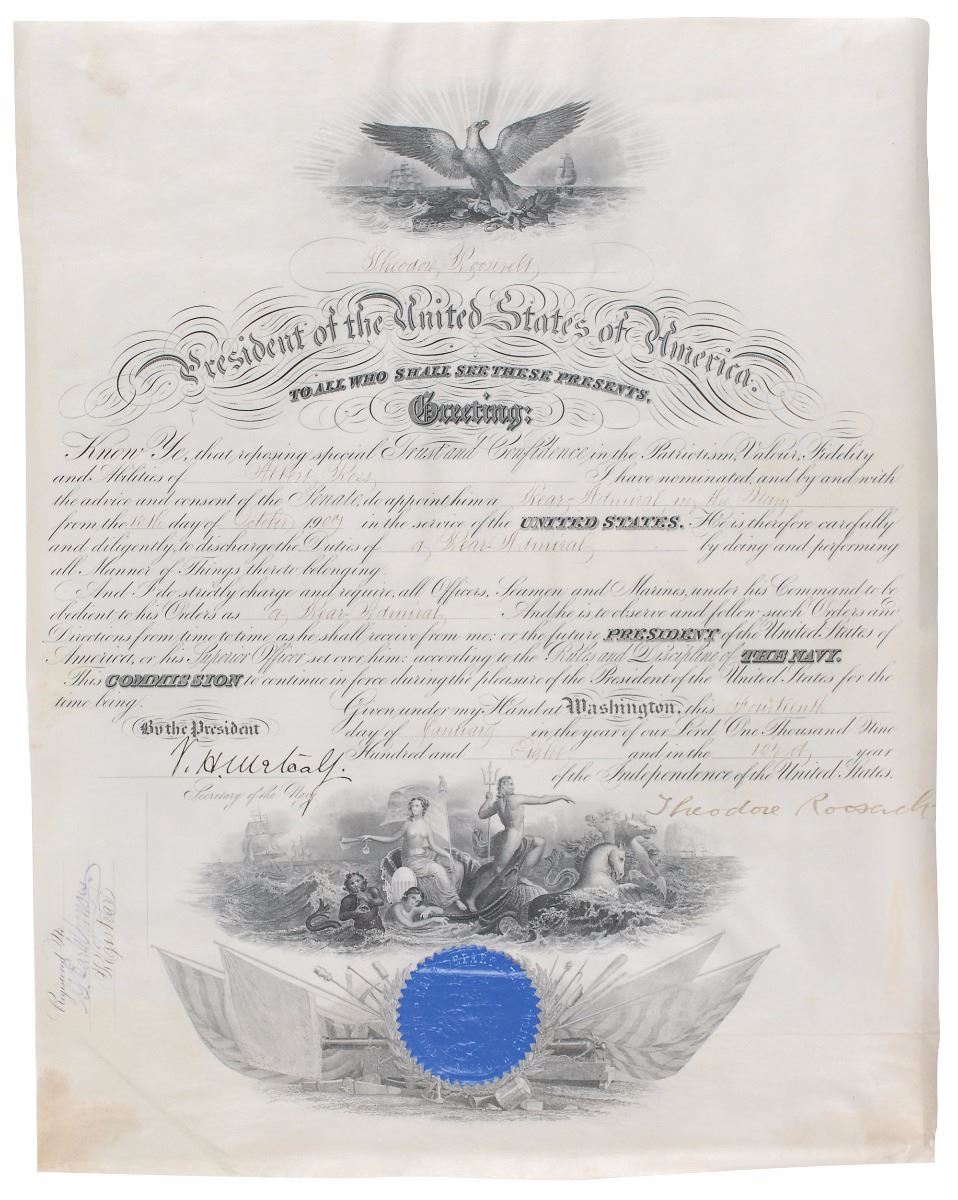 Theodore Roosevelt,
President of the United States of America.
TO ALL WHO SHALL SEE THESE PRESENTS,
Greeting:
Know Ye, that reposing special Trust and Confidence in the Patriotism, Valour, Fidelity
and Abilities of Albert Ross, I have nominated, and by and with
the advice and consent of the Senate, do appoint him a Rear Admiral in the Navy
from the 18th day of October 1907 in the service of the UNITED STATES. He is therefore carefully
and diligently, to discharge the Duties of a Rear Admiral by doing and performing
all Manner of Things thereto belonging.
And I do strictly charge and require, all Officers, Seamen and Marines, under his Command to be
obedient to his Orders as a Rear Admiral, And he is to observe and follow such Orders and
Directions from time to time as he shall receive from me, or the future PRESIDENT of the United States of
America, or his Superior Officer set over him, according to the Rules and Discipline of THE NAVY.
This COMMISSION to continue in force during the pleasure of the President of the United States for the
time being.
Given under my Hand at Washington, this Fourteenth
By the President
day of January in the year of our Lord, One Thousand Nine
Hundred and Eight and in the 132nd year
V. H. Metcalf.
of the Independence of the United States.
Secretary of the Navy
Theodore Roosevelt
Registered No.
Registrar